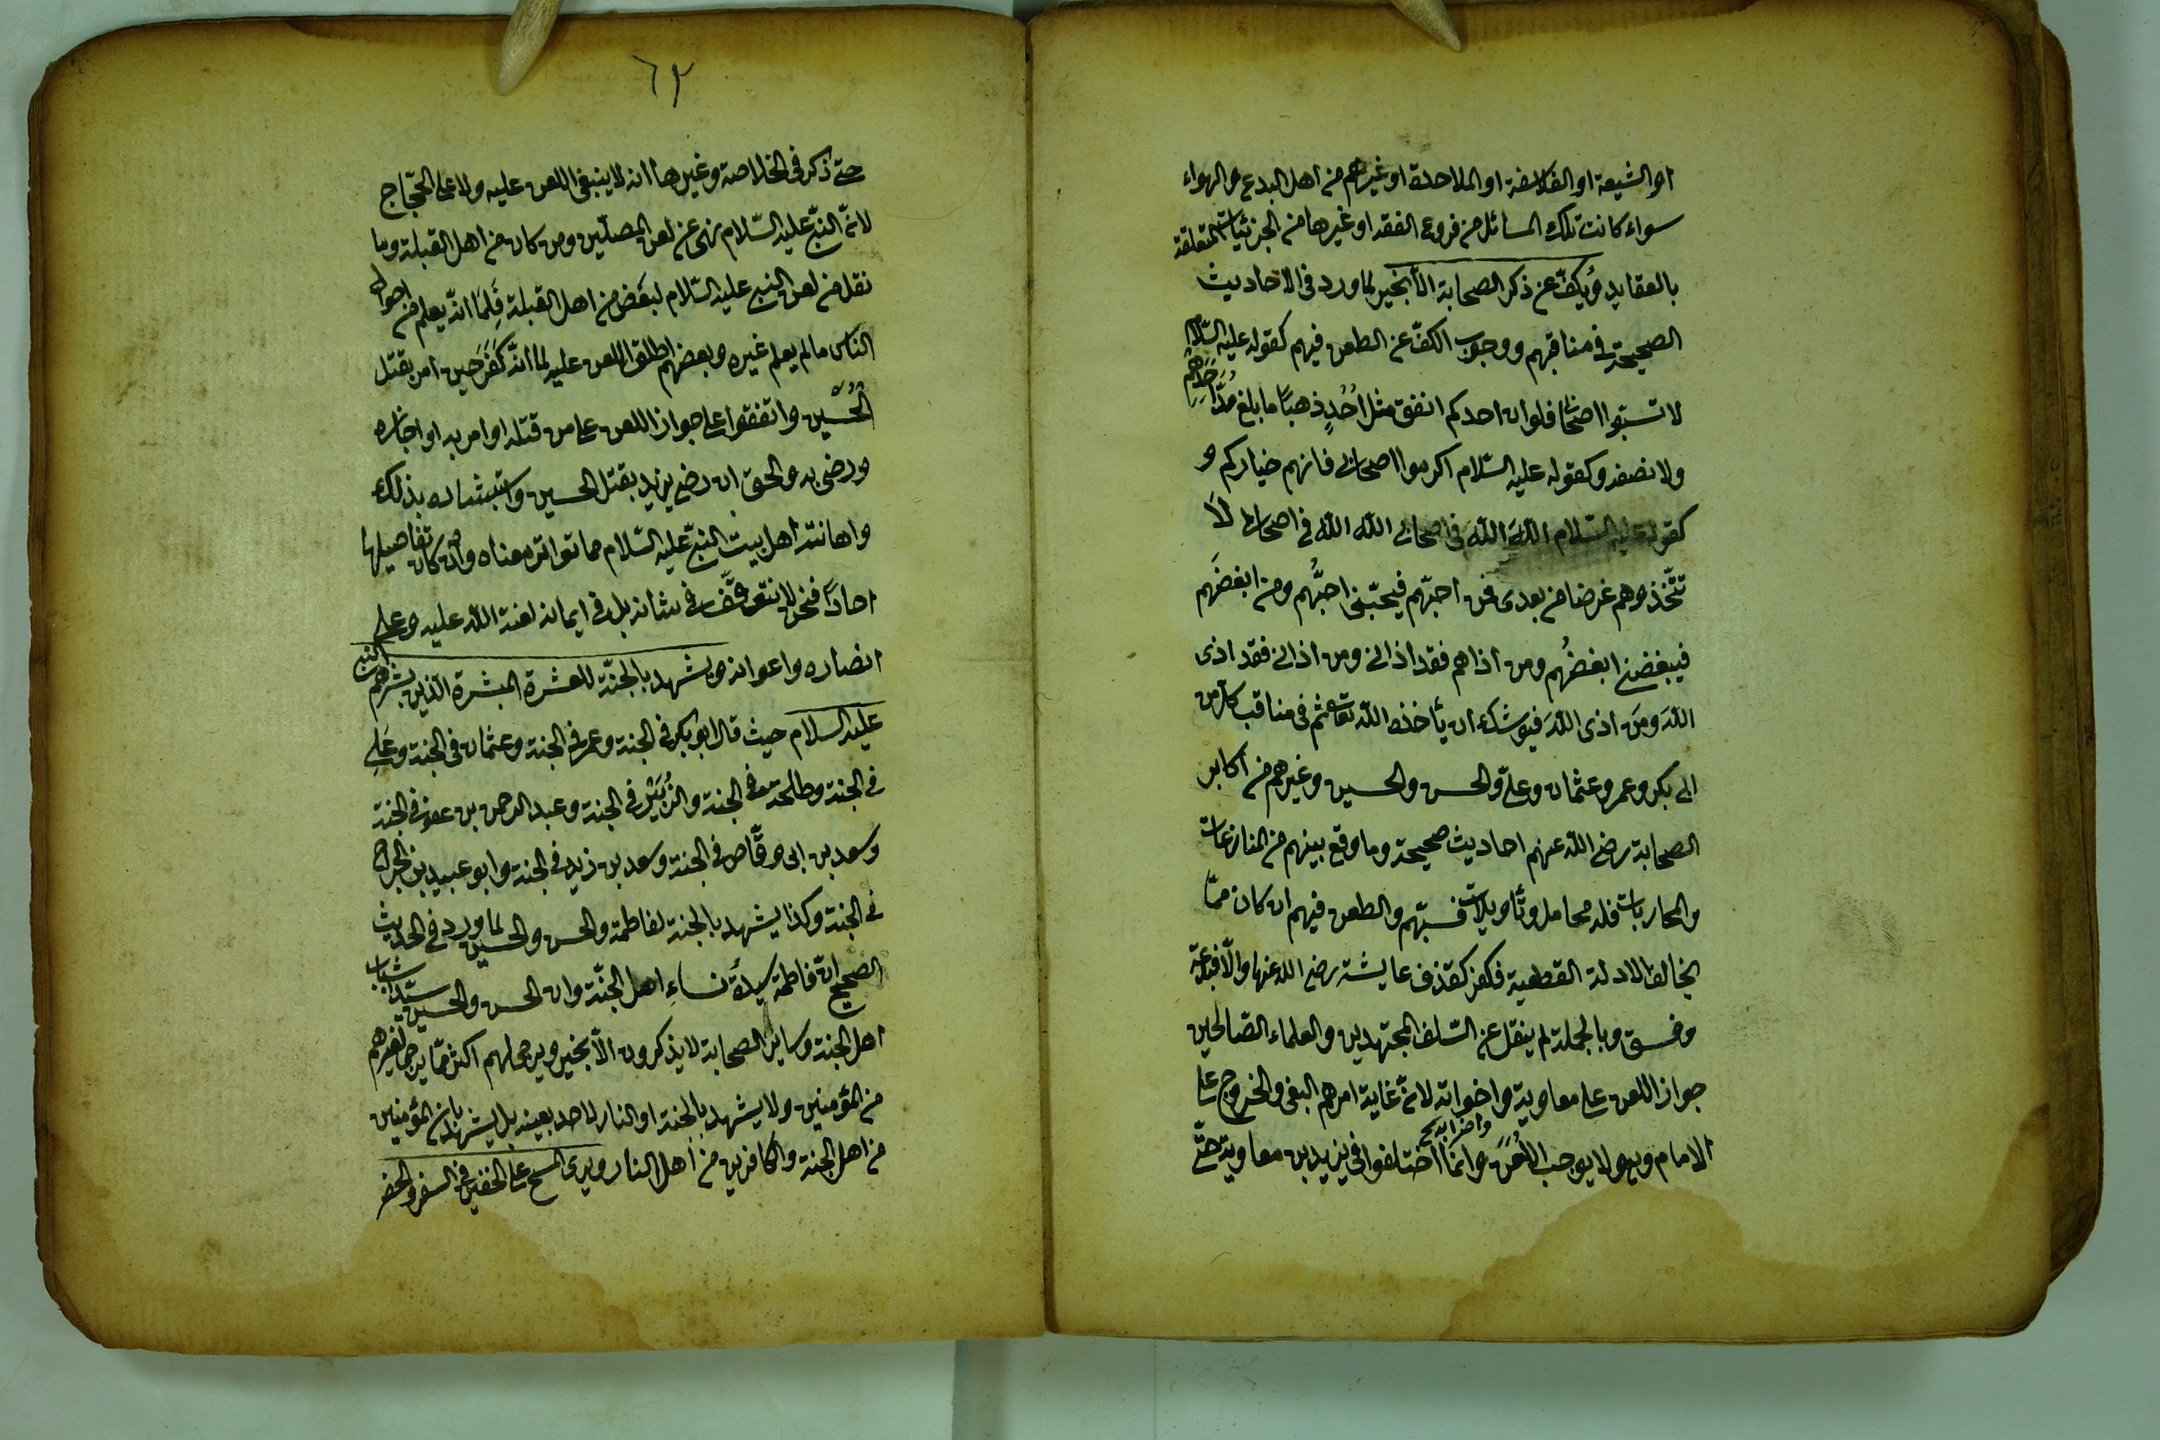 او الشيعة او الفلاسفة او الملاحدة او غيرهم من اهل البدع والهواء
سواء كانت تلك المسائل من فروع الفقه او غيرها من الجزئيات المتعلقة
بالعقايد ويكف عن ذكر الصحابة الا بخير لما ورد فى الاحاديث
الصحيحة فى مناقبهم ووجوب الكف عن الطعن فيهم كقوله عليه السلام
لا تسبوا اصحابى فلو ان احدكم انفق مثل اُحُدٍ ذهبًا ما بلغ مُدَّ احدهم
ولا نصفه وكقوله عليه السلام اكرموا اصحابى فانهم خياركم و
كقوله عليه السلام اللهَ اللهَ فى اصحابى الله الله فى اصحابى لا
تتخذوهم غرضا من بعدى فمن احبّهم فبحبّى احبُّهم ومن ابغضَهم
فببغضى ابغضُهم ومن اذاهم فقد اذانى ومن اذانى فقد اذى
اللهَ ومَن اذى اللهَ فيوشك ان يأخذه الله تعالى ثم فى مناقب كل من
ابى بكر وعمر وعثمان وعلى والحسن والحسين وغيرهم من اكابر
الصحابة رضى الله عنهم احاديث صحيحة وما وقع بينهم من المنازعات
والمحاربات فله محامل وتأويلات فسبّهم والطعن فيهم ان كان ممّا
يخالف الادلة القطعية فكفر كقذف عايشة رضى الله عنها والّا فبدعة
وفسق وبالجملة لم ينقل عن السلف المجتهدين والعلماء الصّالحين
جواز اللعن على معاوية واخوانه لانّ غاية امرهم البغى والخروج على
واحزابه صح
الامام وهو لا يوجب اللعن وانما اختلفوا فى يزيد بن معاوية حتّى
٦٢
حتى ذكر فى الخلاصة وغيرها انه لا ينبغى اللعن عليه ولا على الحجّاج
لانّ النبى عليه السّلام نهى عن لعن المصلّين ومن كان من اهل القبلة وما
نقل من لعن النبى عليه السّلام لبعض من اهل القبلة فلما انّه يعلم من احوال
الناس ما لم يعلم غيره وبعضهم اطلق اللعن عليه لما انّه كَفَرَ حين امر بقتل
الحُسَين واتفقوا على جواز اللعن على من قتله او امر به او اجازه
ورضى به والحق ان رضى يزيد بقتل الحسين واستبشاره بذلك
واهانته اهل بيت النبى عليه السّلام مما تواتر معناه وان كان تفاصيلها
احادًا فنحن لا نتوقّف فى شانه بل فى ايمانه لعنة الله عليه وعلى
انصاره واعوانه ويشهد بالجنّة للعشرة المبشرة الذين بشرهم النبى
عليه السلام حيث قال ابو بكر فى الجنة وعمر فى الجنة وعثمان فى الجنة وعَلى
فى الجنة وطلحة فى الجنة والزُبَيْر فى الجنة وعبد الرحمن بن عوف فى الجنة
وسعد بن ابى وقّاص فى الجنة وسعد بن زيد فى الجنة وابو عبيد بن الجراح
فى الجنة وكذا يشهد بالجنة لفاطمة والحسن والحسين لما ورد فى الحديث
الصحيح انّ فاطمة سيدة نساءِ اهل الجنّة وان الحسن والحسين سيّدا شباب
اهل الجنة وساير الصحابة لا يذكرون الا بخير ويرجى لهم اكثر ممّا يرجى لغيرهم
من المؤمنين ولا يشهد بالجنة او النار لاحد بعينه بل يشهد بان المؤمنين
من اهل الجنة والكافرين من اهل النار ويرى المسح على الخفين فى السفر والحضر